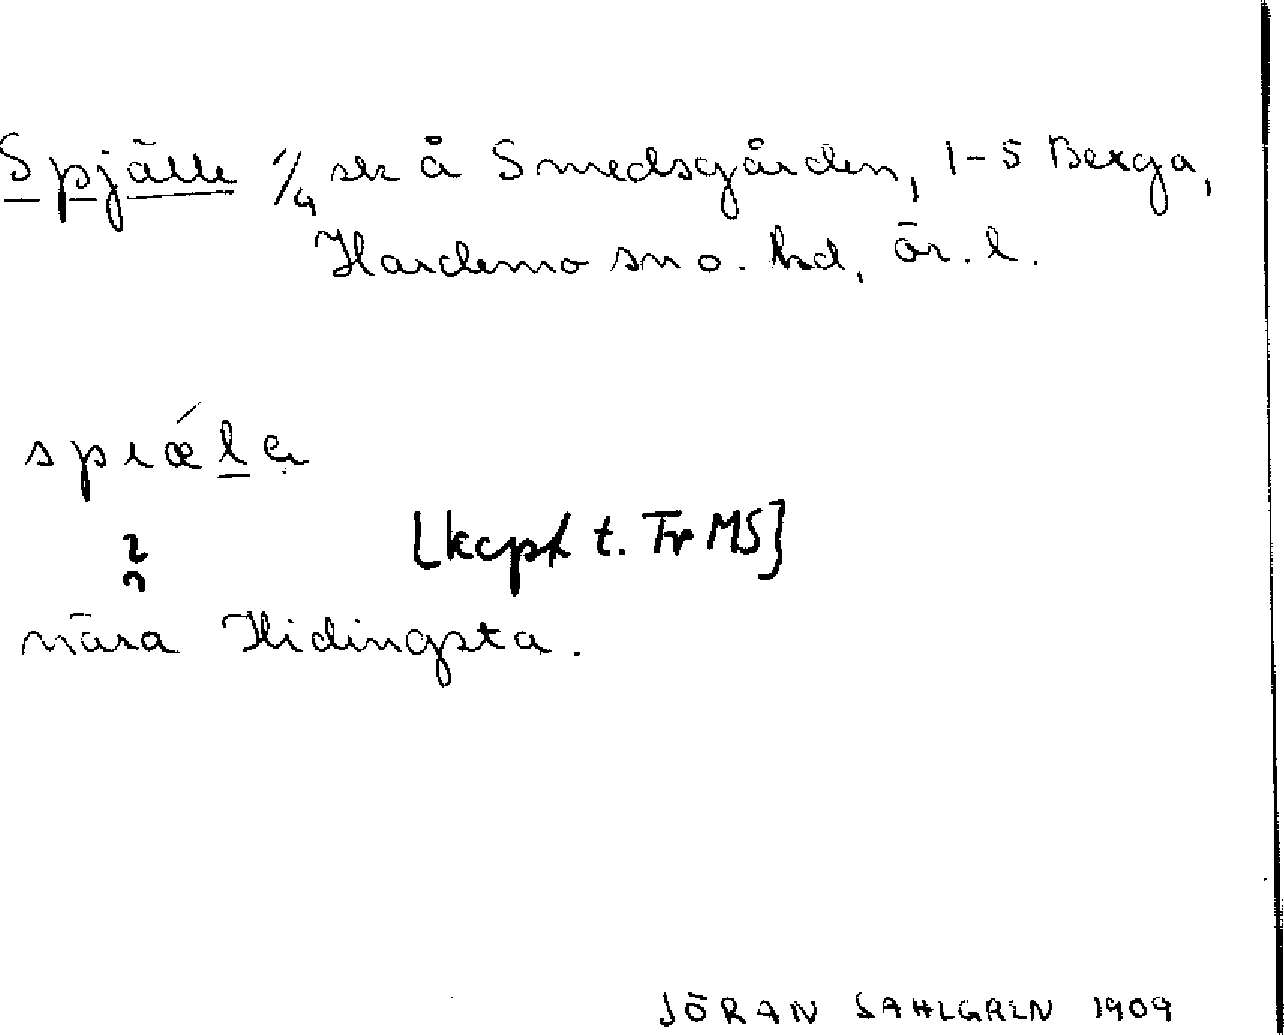 Spjälle 1/4 sk å Smedsgården, 1-5 Berga,
Hardemo sn o. hd, Ör. l.
spıǽle
[kopt t. Tr MS]
?
nära Hidingsta.
JÖRAN SAHLGREN 1909